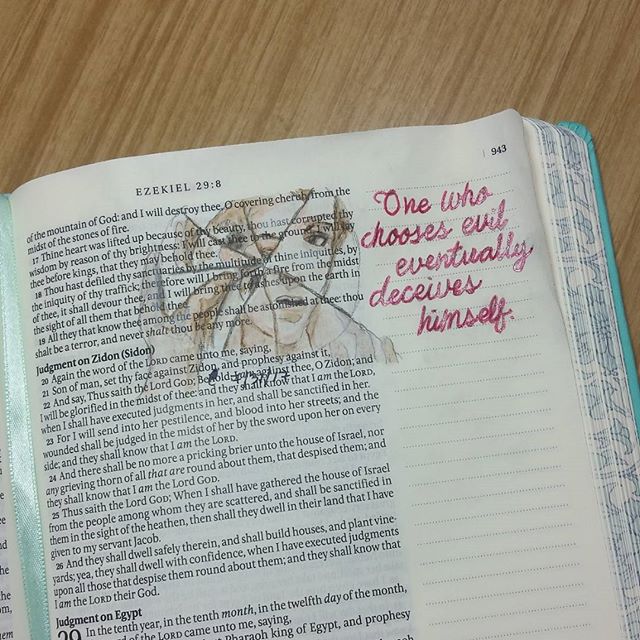 943
EZEKIEL 29:8
of the mountain of God: and I will destroy thee, O covering cherub, from the
midst of the stones of fire.
17 Thine heart was lifted up because of thy beauty, thou hast corrupted thy
wisdom by reason of thy brightness: I will cast thee to the ground, I will lay
thee before kings, that they may behold thee.
18 Thou hast defiled thy sanctuaries by the multitude of thine iniquities, by
the iniquity of thy traffick; therefore will I bring forth a fire from the midst
of thee, it shall devour thee, and I will bring thee to ashes upon the earth in
the sight of all them that behold thee.
19 All they that know thee among the people shall be astonished at thee: thou
shalt be a terror, and never shalt thou be any more.
Judgment on Zidon (Sidon)
20 Again the word of the LORD came unto me, saying,
21 Son of man, set thy face against Zidon, and prophesy against it,
22 And say, Thus saith the Lord GOD; Behold, I am against thee, O Zidon; and
I will be glorified in the midst of thee: and they shall know that I am the LORD,
when I shall have executed judgments in her, and shall be sanctified in her.
23 For I will send into her pestilence, and blood into her streets; and the
wounded shall be judged in the midst of her by the sword upon her on every
side; and they shall know that I am the LORD.
24 And there shall be no more a pricking brier unto the house of Israel, nor
any grieving thorn of all that are round about them, that despised them; and
they shall know that I am the Lord GOD.
25 Thus saith the Lord GOD; When I shall have gathered the house of Israel
from the people among whom they are scattered, and shall be sanctified in
them in the sight of the heathen, then shall they dwell in their land that I have
given to my servant Jacob.
26 And they shall dwell safely therein, and shall build houses, and plant vine-
yards; yea, they shall dwell with confidence, when I have executed judgments
upon all those that despise them round about them; and they shall know that
I am the LORD their God.
Judgment on Egypt
29 In the tenth year, in the tenth month, in the twelfth day of the month,
word of the LORD came unto me, saying,
against Pharaoh king of Egypt, and prophesy
One who
chooses evil
eventually
deceives
himself.